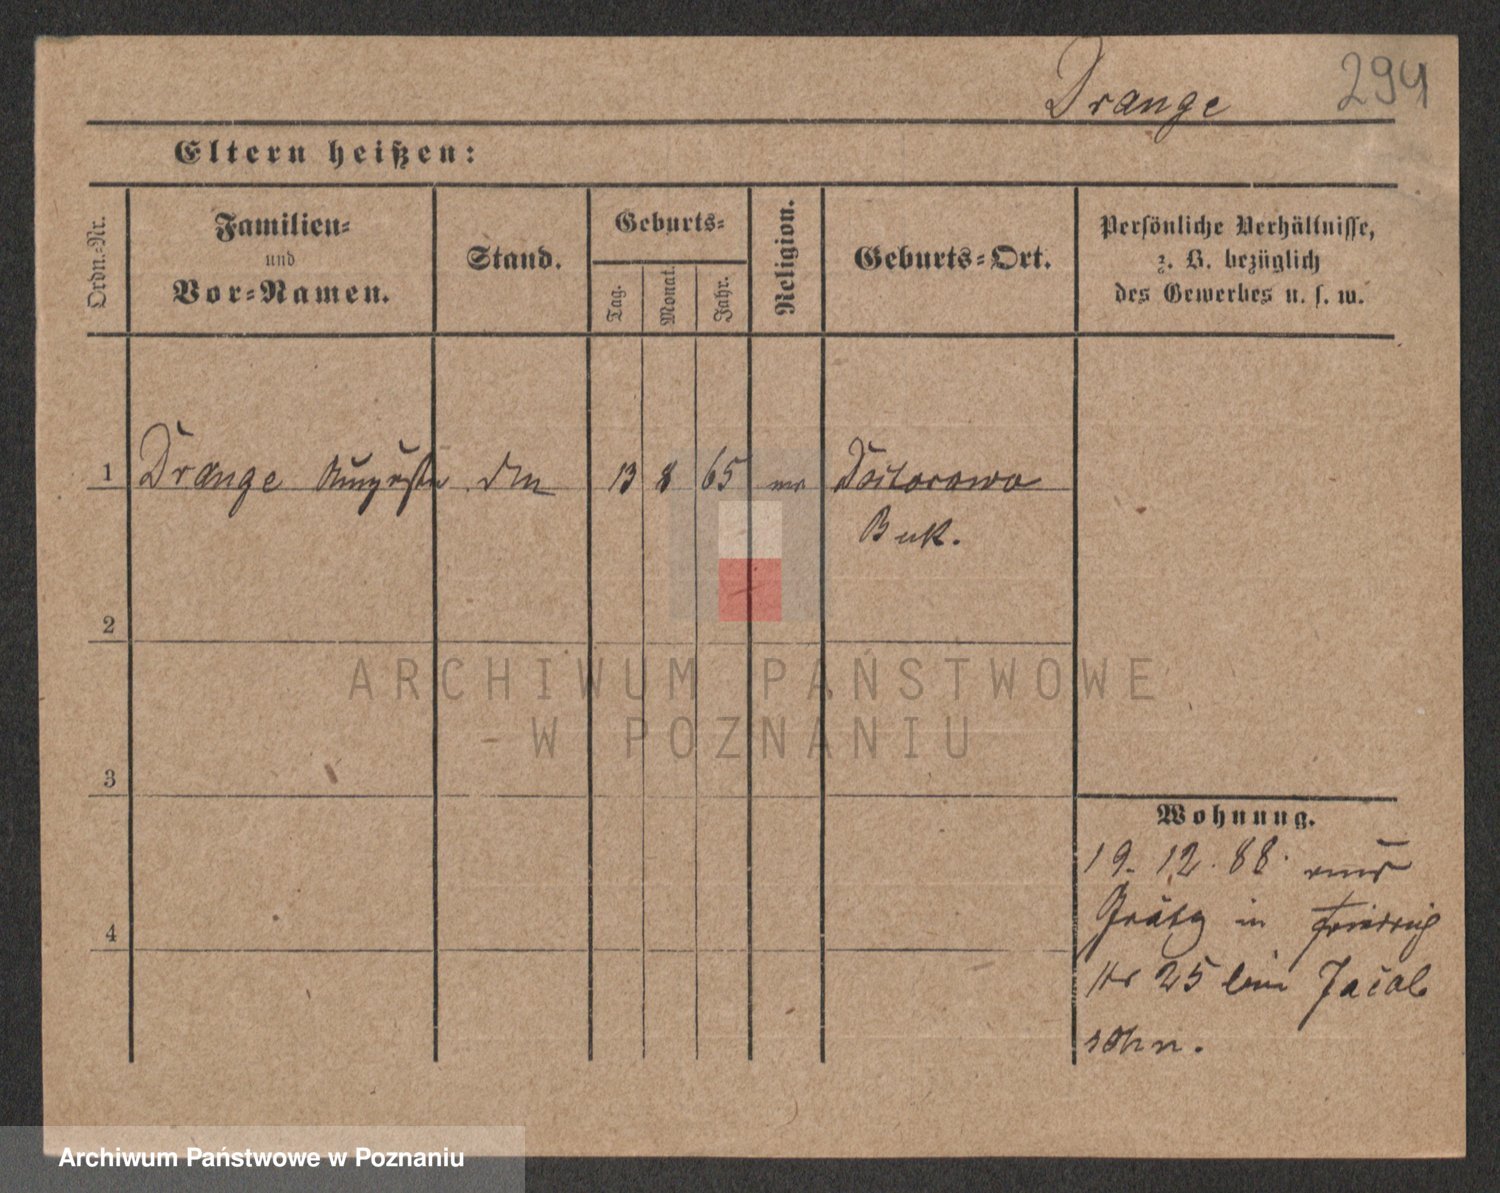 Drange
294
Eltern heißen:
Ordn.=Nr.
Familien=
und
Vor=Namen.
Stand.
Geburts=
Tag.
Monat.
Jahr.
Religion.
Geburts=Ort.
Persönliche Verhältnisse,
z. B. bezüglich
des Gewerbes u. s. w.
1 Drange Auguste 13 8 65
Buk.
2
3
4
Wohnung.
19. 12. 88. aus
Grätz in
Str 25 beim Jacob
sohn.
ARCHIWUM PAŃSTWOWE
W POZNANIU
Archiwum Państwowe w Poznaniu